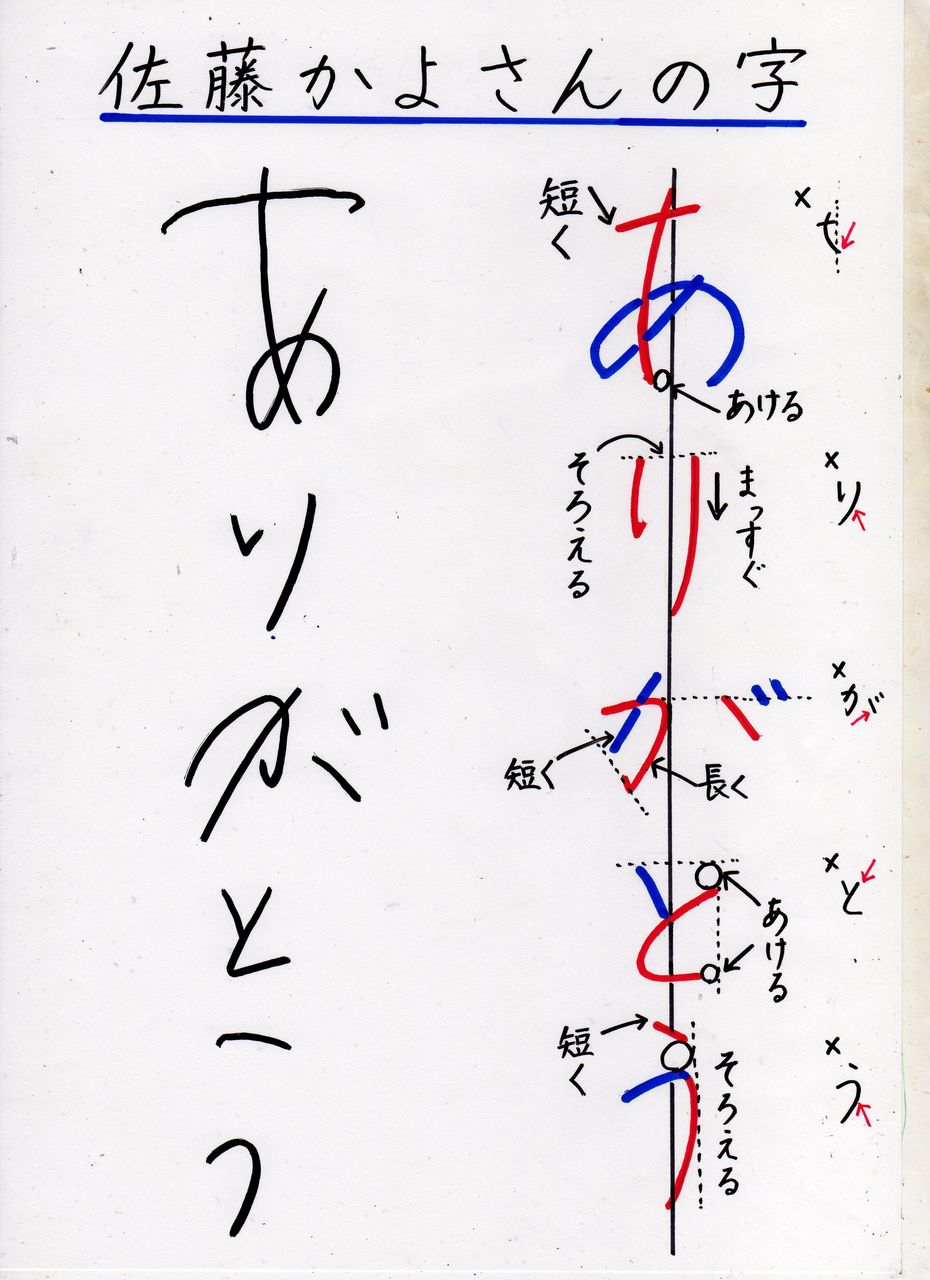 佐藤かよさんの字
ありがとう
ありがとう
短く
あける
そろえる
まっすぐ
短く
長く
あける
短く
そろえる
×
×り
×が
×と
×う